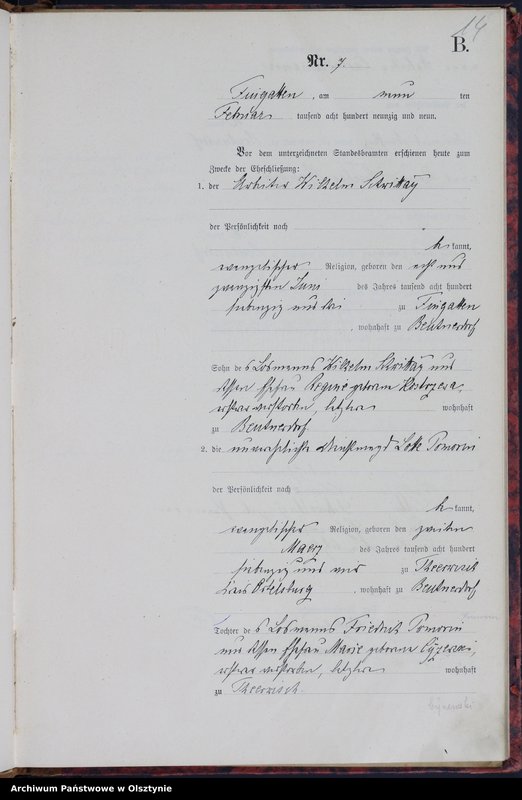 14
B.
Nr. 7.
Fingatten, am neun ten
Februar tausend acht hundert neunzig und neun.
Vor dem unterzeichneten Standesbeamten erschienen heute zum
Zwecke der Eheschließung:
1. der Arbeiter Wilhelm
der Persönlichkeit nach
be kannt,
evangelischer Religion, geboren den acht und
zwanzigsten Juni des Jahres tausend acht hundert
siebenzig und drei zu Fingatten
, wohnhaft zu Beutnerdorf
Sohn des Losmanns Wilhelm und
dessen Ehefrau Regine geborene
ersterer verstorben, letztere wohnhaft
zu Beutnerdorf
2. die unverehelichte Dienstmagd Lotte Pomorin
der Persönlichkeit nach
be kannt,
evangelischer Religion, geboren den zweiten
Maerz des Jahres tausend acht hundert
siebenzig und zu Theerwisch
Kreis Ortelsburg, wohnhaft zu Beutnerdorf
Tochter des Losmanns Friedrich Pomorin
und dessen Ehefrau Marie geborene
ersterer verstorben, letztere wohnhaft
zu Theerwisch.
Archiwum Państwowe w Olsztynie